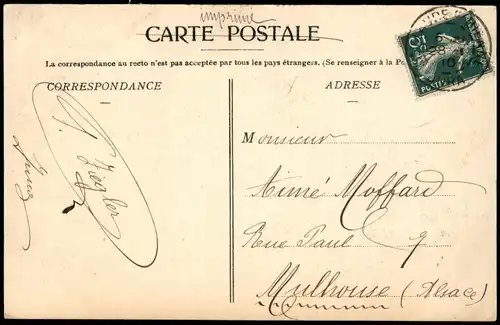 imprimé
CARTE POSTALE
La correspondance au recto n'est pas acceptée par tous les pays étrangers. (Se renseigner à la Po
CORRESPONDANCE
ADRESSE
Monsieur
Aimé Moffard
Rue Paul 9
Mulhouse (Alsace)
Ziegler
5
POSTES